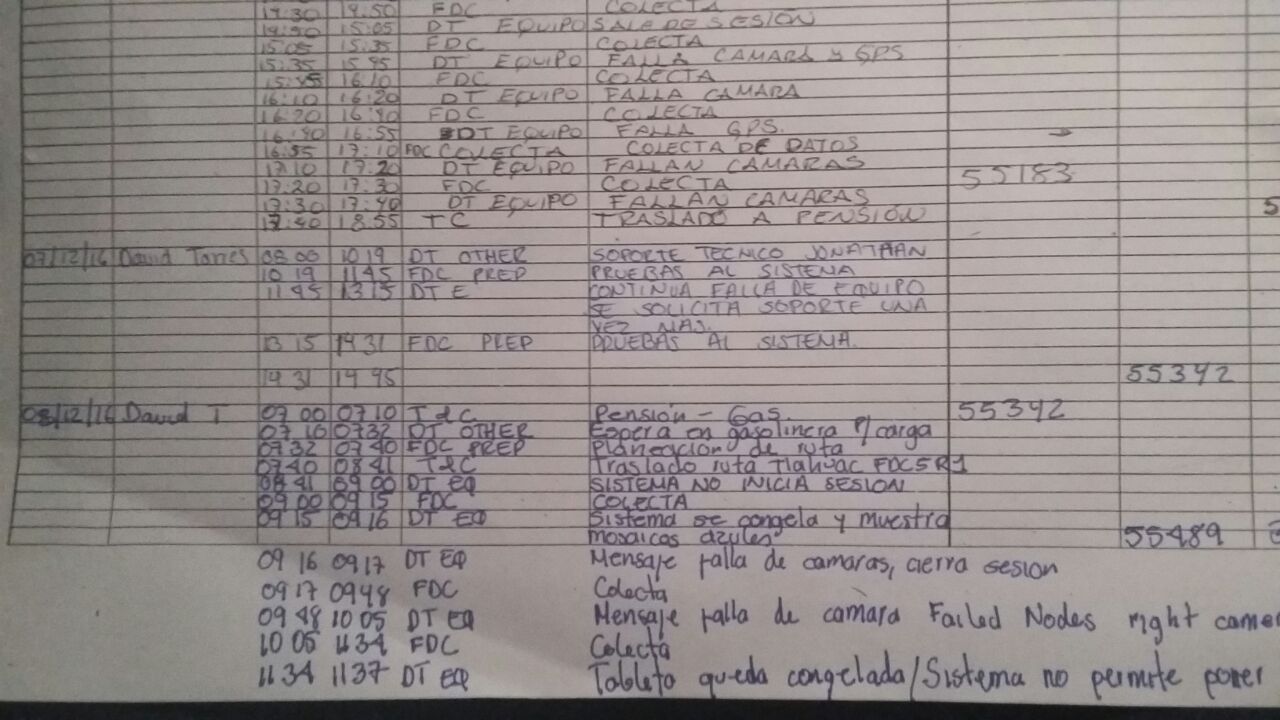 14:30 14:50 FDC COLECTA
14:50 15:05 DT EQUIPO SALE DE SESIÓN
15:05 15:35 FDC COLECTA
15:35 15 45 DT EQUIPO FALLA CAMARA y GPS
15:45 16:10 FDC COLECTA
16:10 16:20 DT EQUIPO FALLA CAMARA
16:20 16:40 FDC COLECTA
16:40 16:55 DT EQUIPO FALLA GPS.
16:55 17:10 FDC COLECTA COLECTA DE DATOS
17:10 17:20 DT EQUIPO FALLAN CAMARAS
17:20 17:30 FDC COLECTA 55183
17:30 17:40 DT EQUIPO FALLAN CAMARAS
17:40 18:55 TC TRASLADO A PENSIÓN 5
07/12/16 David Torres 08 00 10 19 DT OTHER SOPORTE TECNICO JONATHAN
10 19 11 45 FDC PREP PRUEBAS AL SISTEMA
11 45 13 15 DT E CONTINUA FALLA DE EQUIPO
SE SOLICITA SOPORTE UNA
VEZ MAS.
13 15 14 31 FDC PREP PRUEBAS AL SISTEMA.
14 31 14 45 55342
08/12/16 David T 07 00 07 10 T d C Pensión - Gas. 55342
07 10 07 32 DT OTHER Espera en gasolinera P/carga
07 32 07 40 FDC PREP Planeación de ruta
07 40 08 41 T d C Traslado ruta Tlahuac FDC5R1
08 41 09 00 DT EQ SISTEMA NO INICIA SESION
09 00 09 15 FDC COLECTA
09 15 09 16 DT EQ Sistema se congela y muestra
mosaicos azules 55489
09 16 09 17 DT EQ Mensaje falla de camaras, cierra sesion
09 17 09 48 FDC Colecta
09 48 10 05 DT EQ Mensaje falla de camara Failed Nodes right camer
10 05 11 34 FDC Colecta
11 34 11 37 DT EQ Tableta queda congelada/Sistema no permite poner